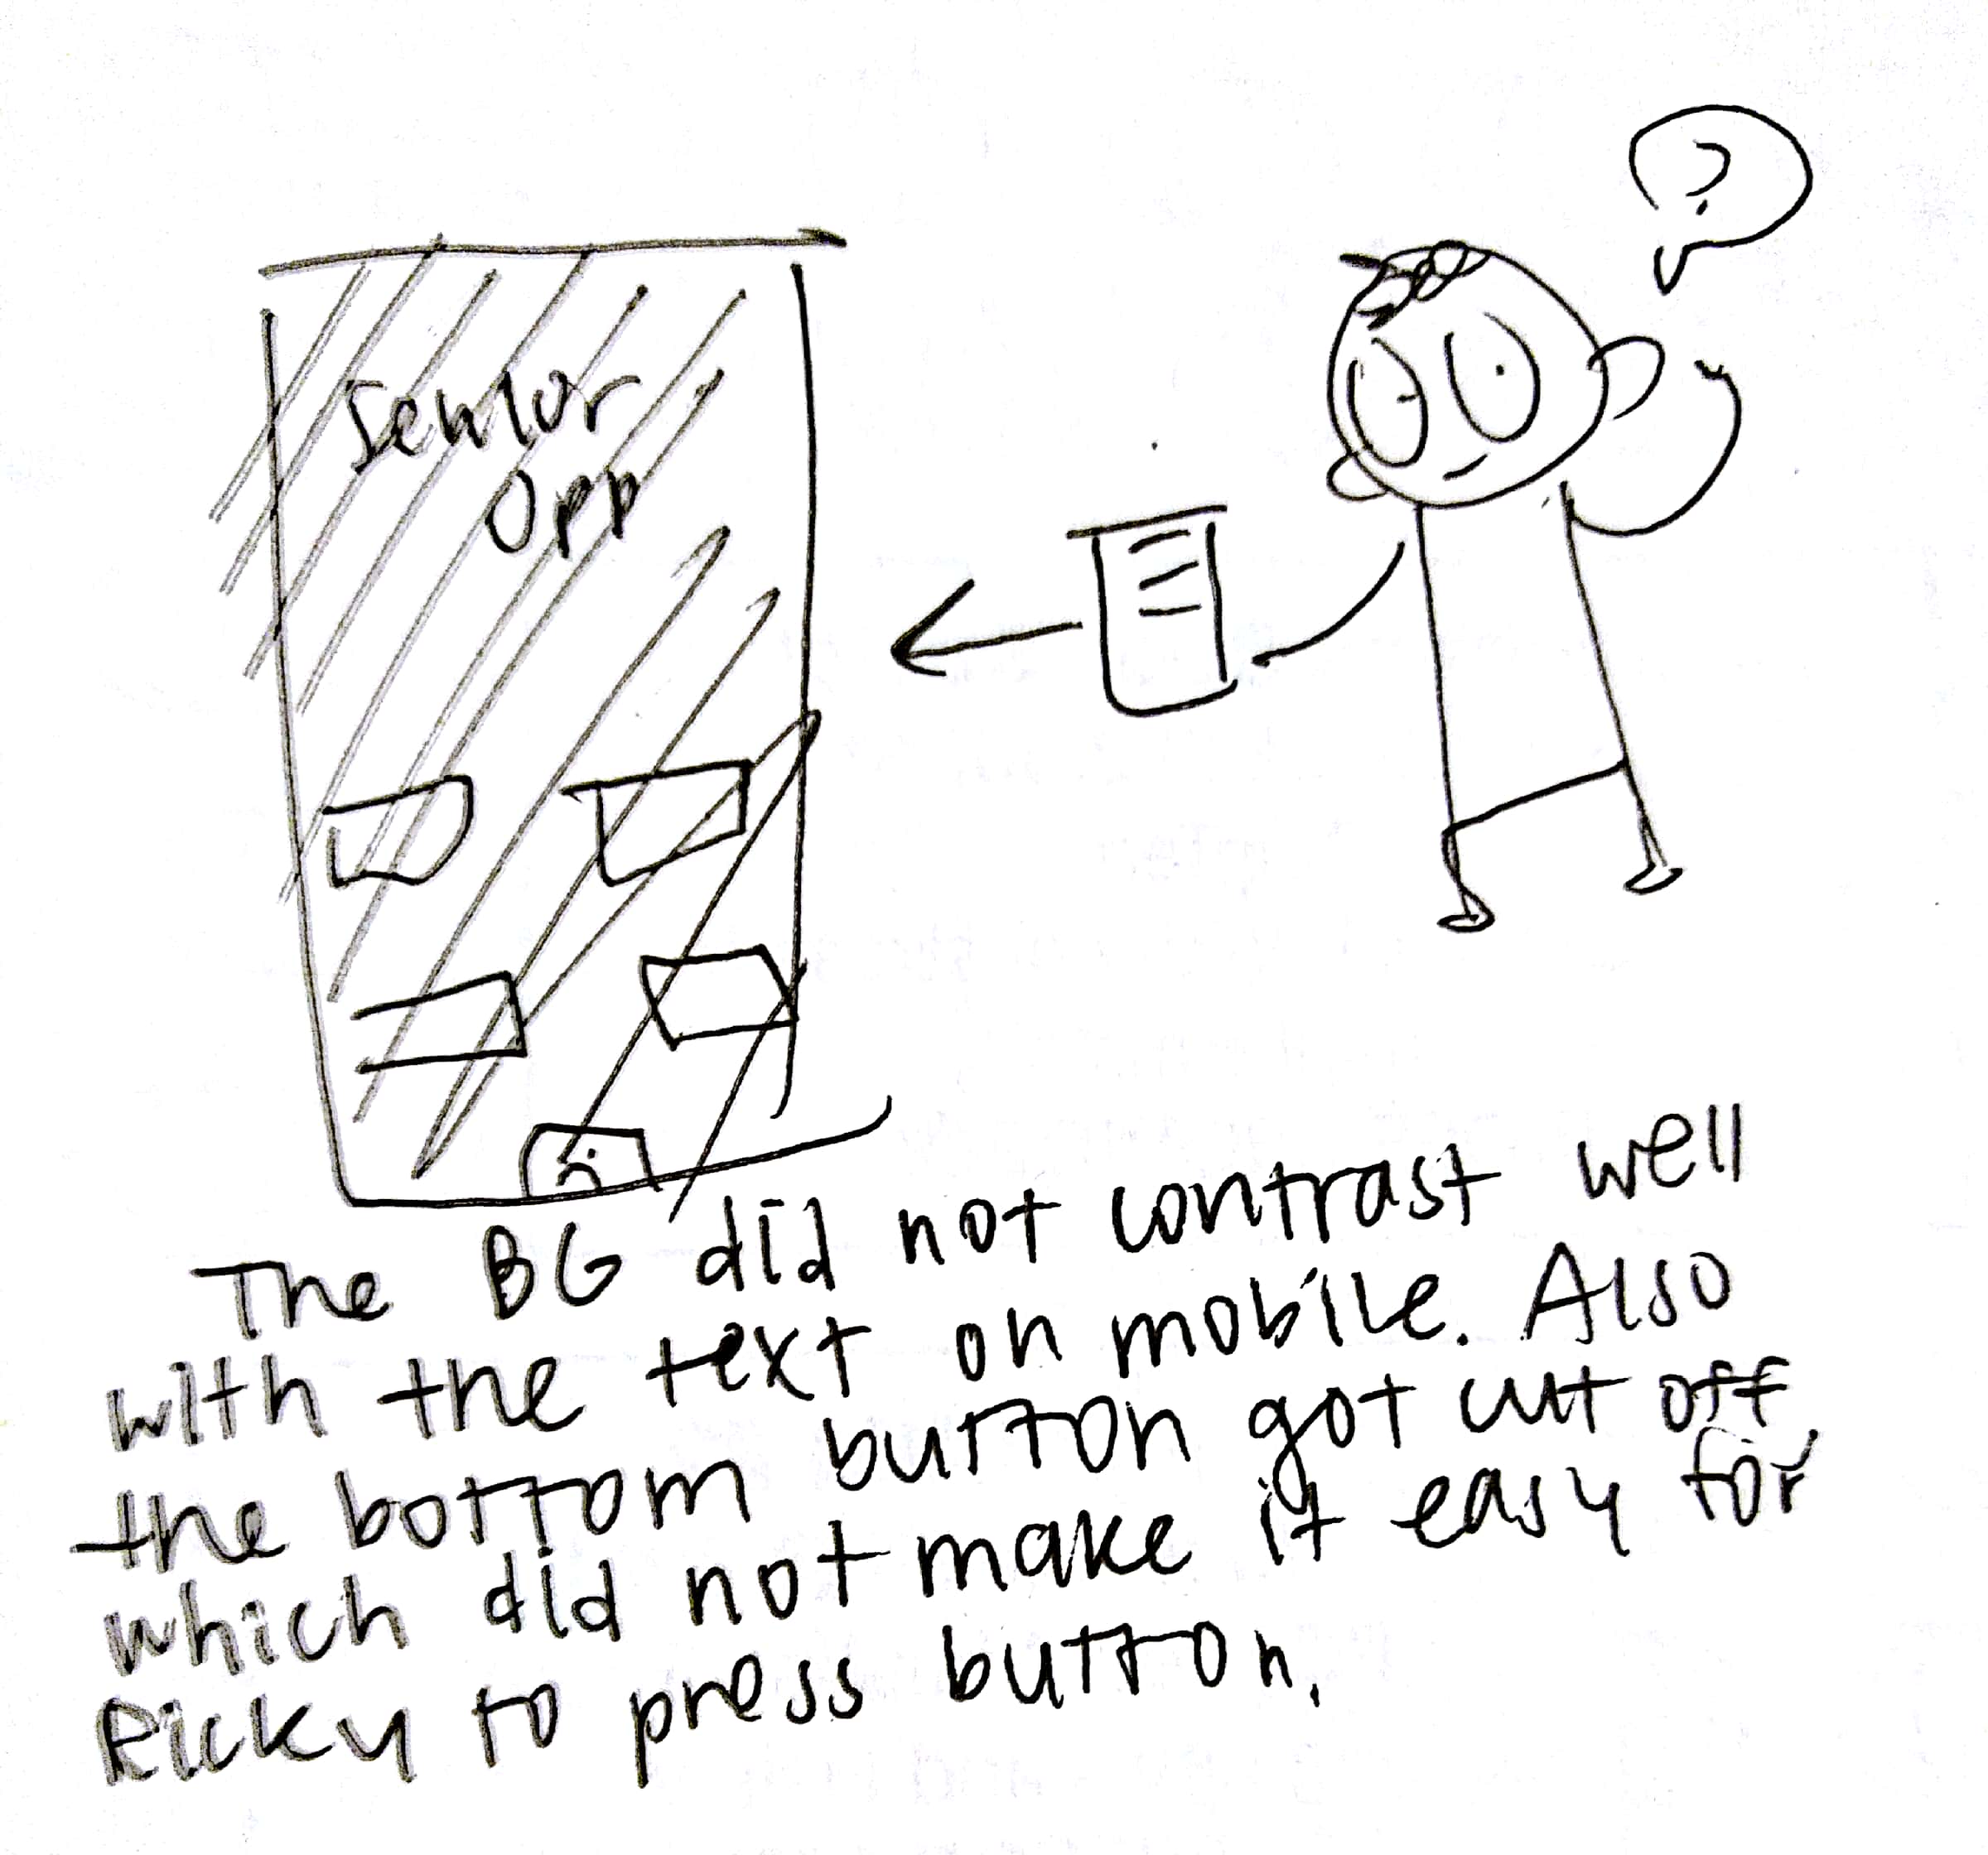 ?
Senior
Opp
The BG did not contrast well
with the text on mobile. Also
the bottom button got cut off
which did not make it easy for
Ricky to press button.